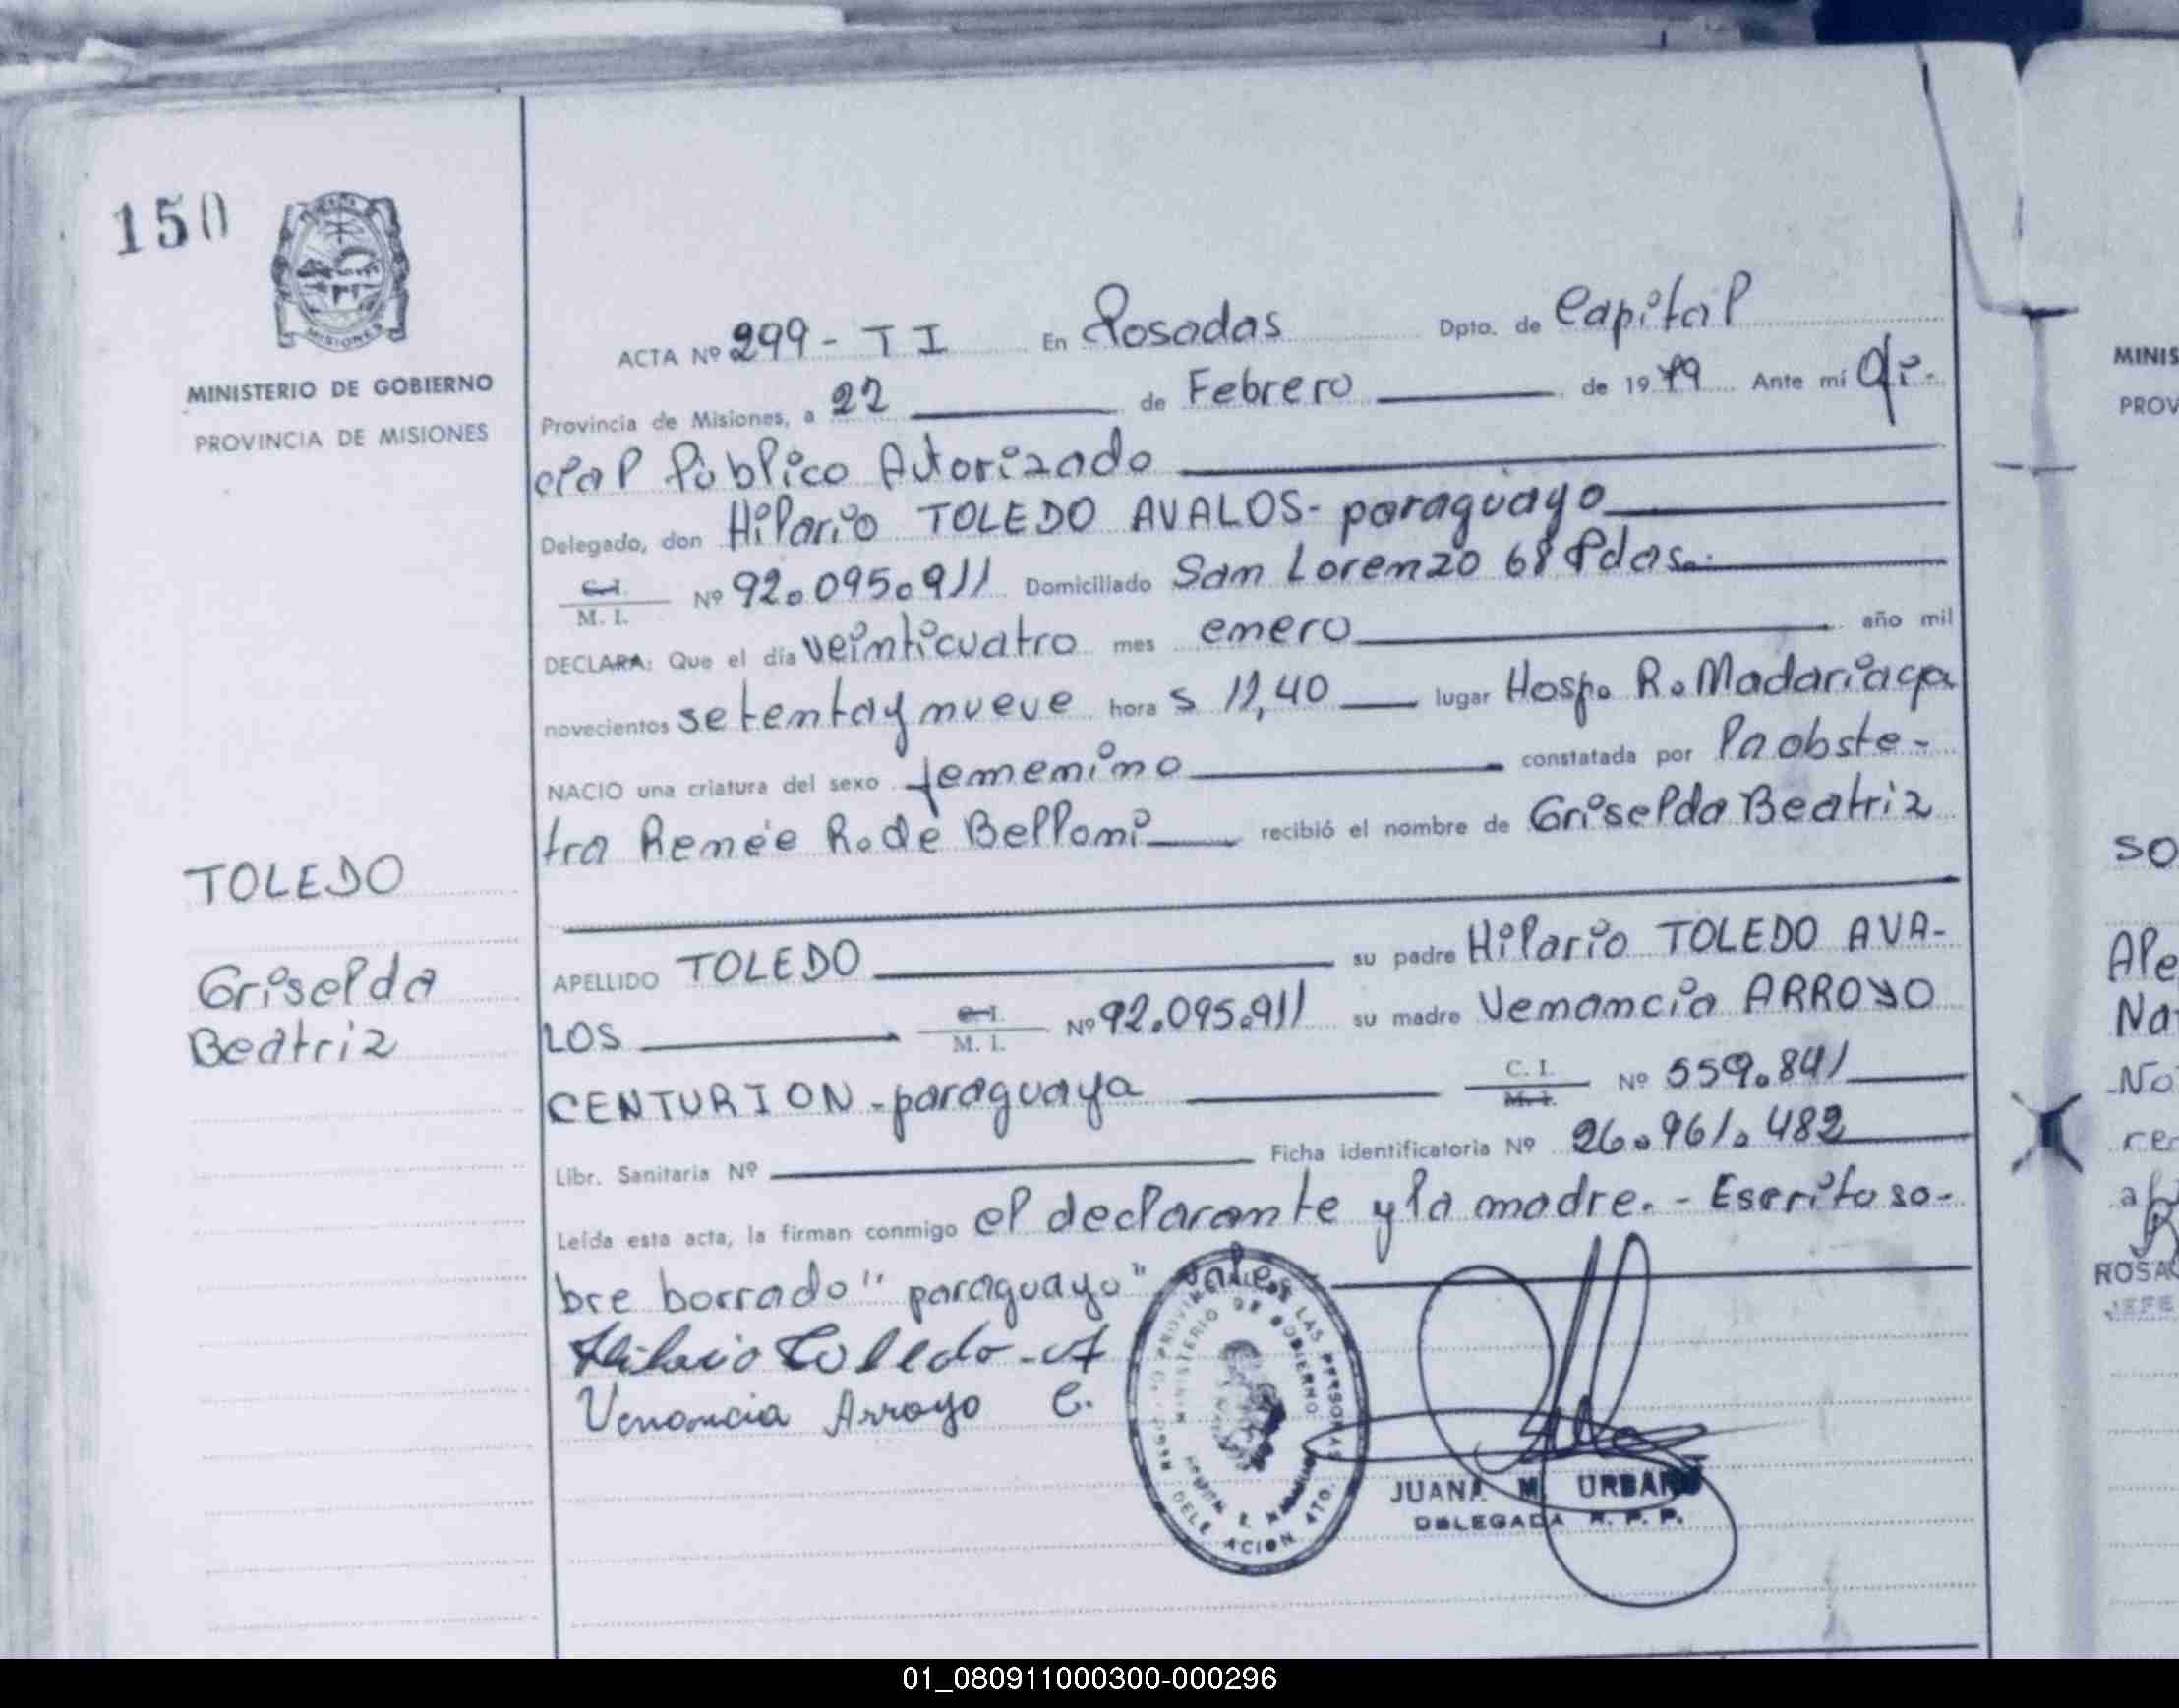 150
MISIONES
MINISTERIO DE GOBIERNO
PROVINCIA DE MISIONES
TOLEDO
Griselda
Beatriz
ACTA Nº 299 - T I En Posadas Dpto. de Capital
Provincia de Misiones, a 22 de Febrero de 1979 Ante mí Ofi-
cial Público Autorizado
Delegado, don Hilario TOLEDO AVALOS - paraguayo
C. I.
M. I. Nº 92.095.911 Domiciliado San Lorenzo 68 Pdas.
DECLARA: Que el día veinticuatro mes enero año mil
novecientos setenta y nueve hora s 11,40 lugar Hosp. R. Madariaga
NACIO una criatura del sexo femenino constatada por la obste-
tra Renée R. de Belloni recibió el nombre de Griselda Beatriz
APELLIDO TOLEDO su padre Hilario TOLEDO AVA-
LOS C. I. M. I. Nº 92.095.911 su madre Venancia ARROYO
CENTURION - paraguaya C. I. M. I. Nº 559.841
Libr. Sanitaria Nº Ficha identificatoria Nº 26.961.482
Leída esta acta, la firman conmigo el declarante y la madre. - Escrito so-
bre borrado "paraguayo" vale.
Hilario Toledo - A
Venancia Arroyo C.
MINISTERIO DE GOBIERNO
LAS PERSONAS
JUANA M. URBANO
DELEGADA R. P. P.
MINIS
PROV
SO
Ale
Na
No
re
ROSA
JEFE
01_080911000300-000296